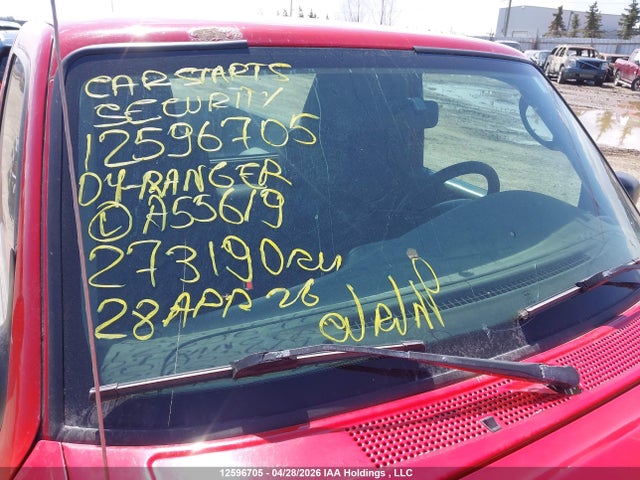 CAR STARTS
SECURITY
12596705
04-RANGER
Ⓛ A55619
273190
28 APR 26
12596705 - 04/28/2026 IAA Holdings , LLC